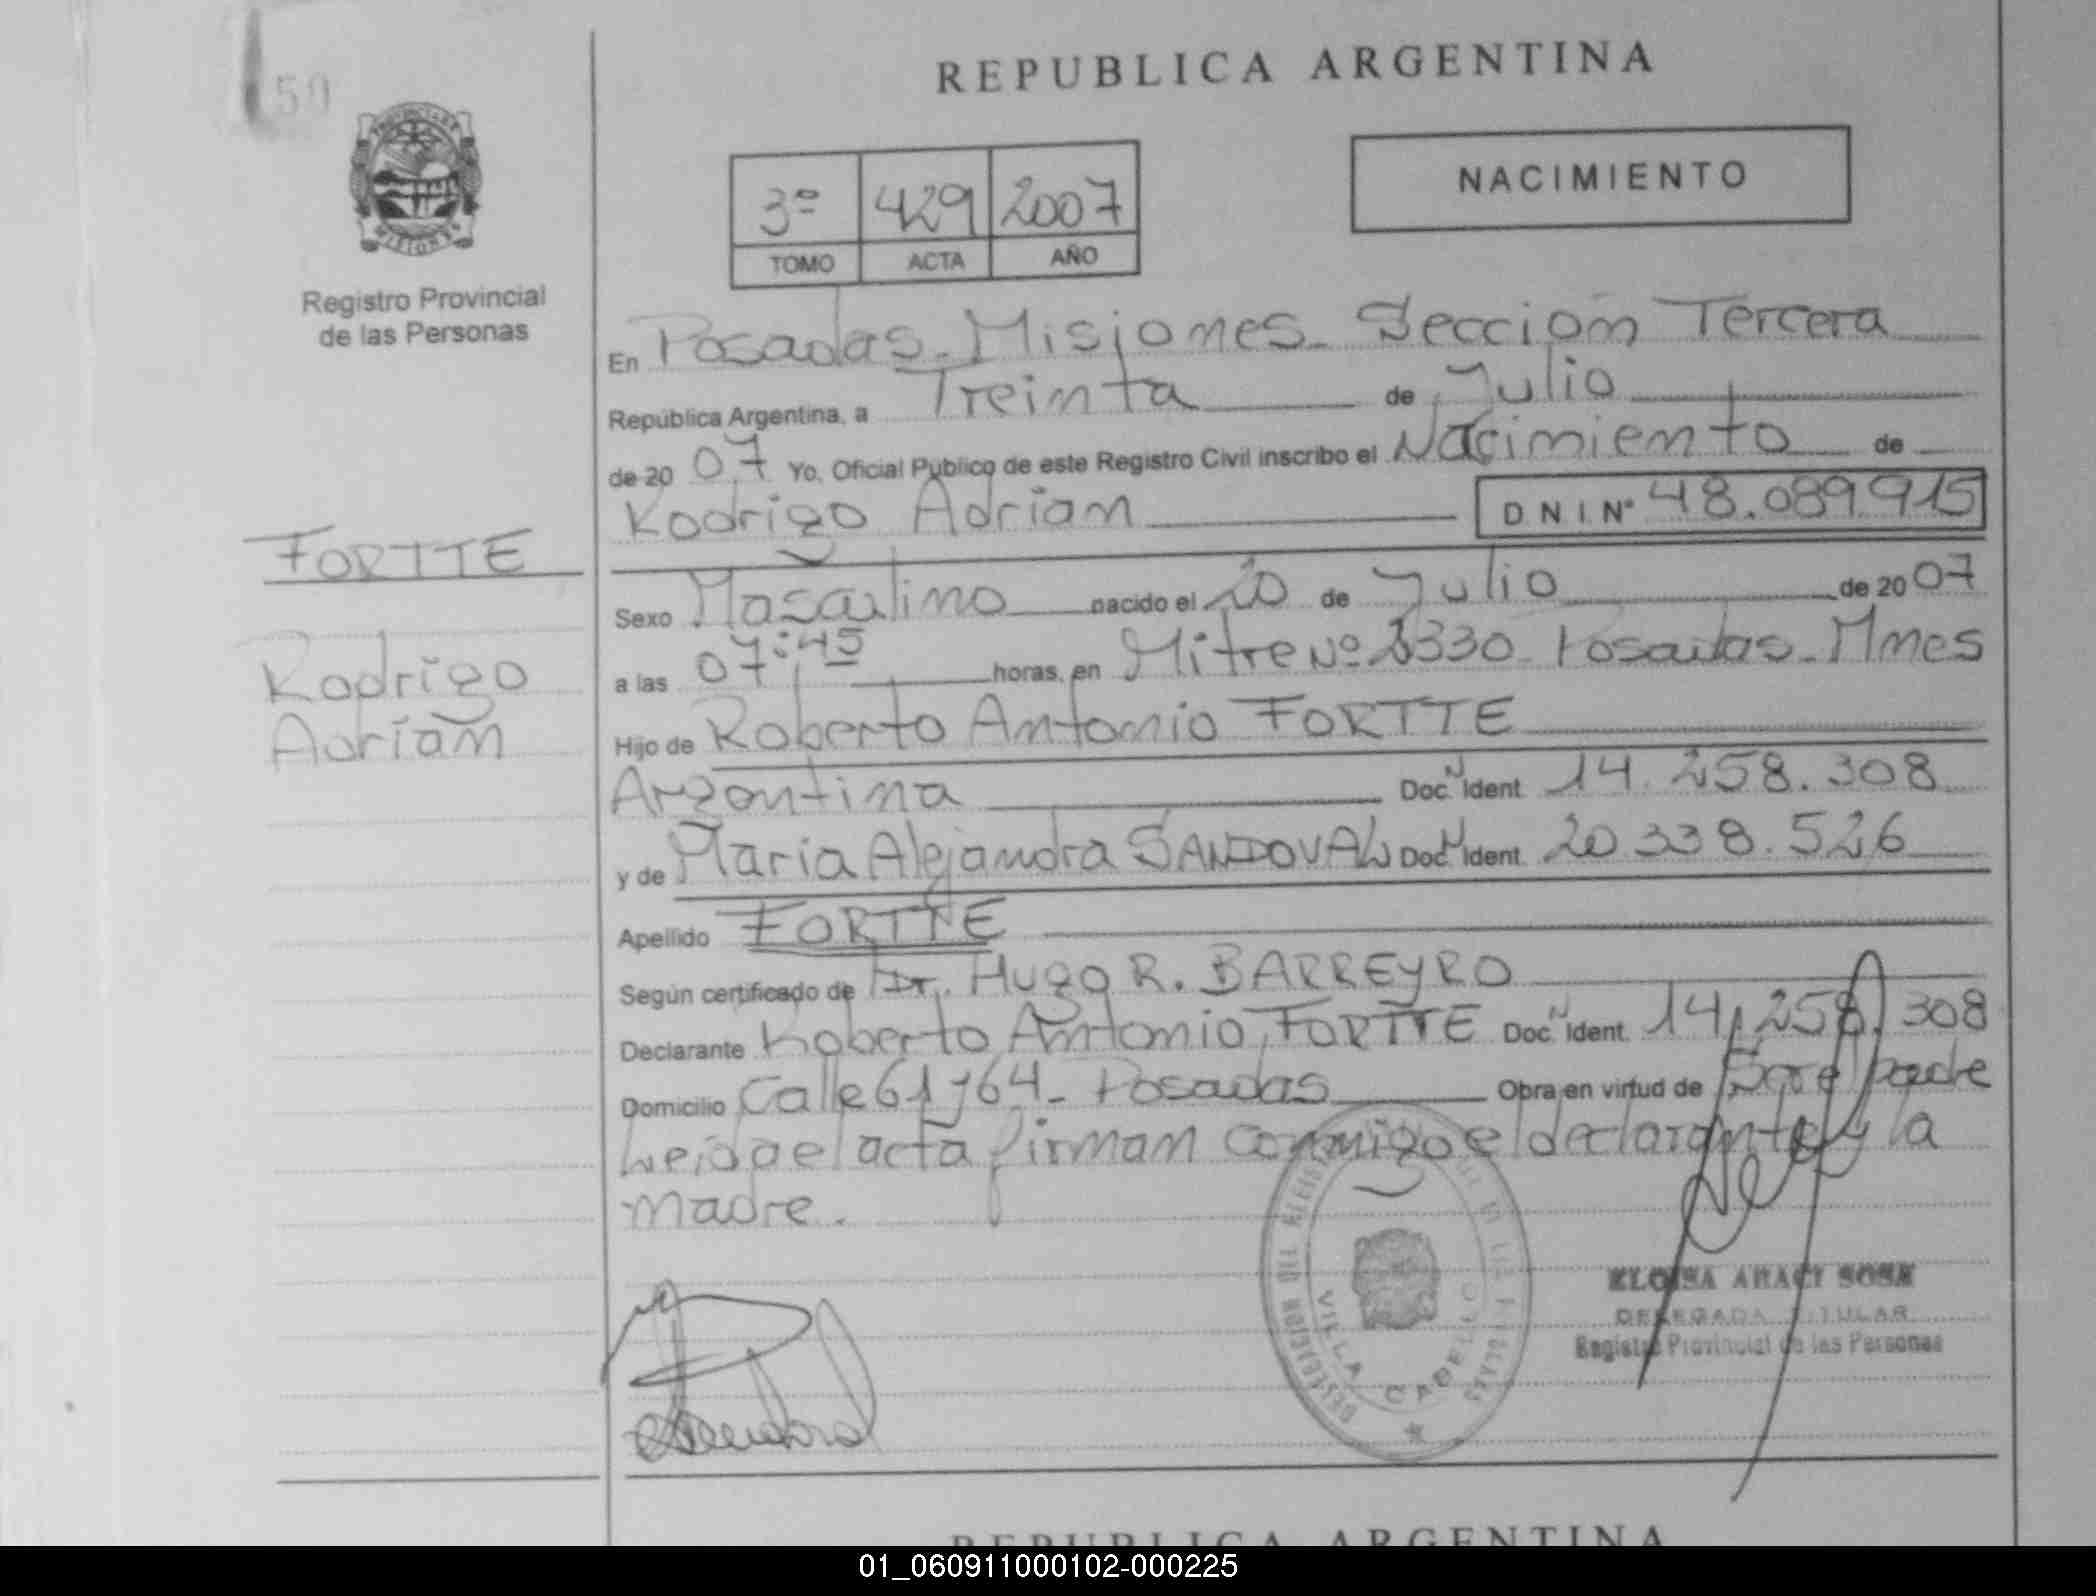 50
REPUBLICA ARGENTINA
NACIMIENTO
3º 429 2007
TOMO ACTA AÑO
PROVINCIA DE
MISIONES
Registro Provincial
de las Personas
En Posadas - Misiones - Sección Tercera
República Argentina, a Treinta de Julio
de 20 07 Yo, Oficial Público de este Registro Civil inscribo el Nacimiento de
Rodrigo Adrian DNI Nº 48.089.915
FORTTE
Rodrigo
Adrian
Sexo Masculino nacido el 20 de Julio de 20 07
a las 07:45 horas, en Mitre Nº 2330 - Posadas - Mnes
Hijo de Roberto Antonio FORTTE
Argentina Doc. N Ident 14.258.308
y de Maria Alejandra SANDOVAL Doc. N Ident 20.338.526
Apellido FORTTE
Según certificado de Dr. Hugo R. BARREYRO
Declarante Roberto Antonio FORTTE Doc. N Ident. 14.258.308
Domicilio Calle 61 y 64 - Posadas Obra en virtud de Ser el padre
Leida el acta firman conmigo el declarante y la
madre.
VILLA CABELLO
ELOISA ARACI SOSA
DELEGADA TITULAR
Registro Provincial de las Personas
REPUBLICA ARGENTINA
01_060911000102-000225